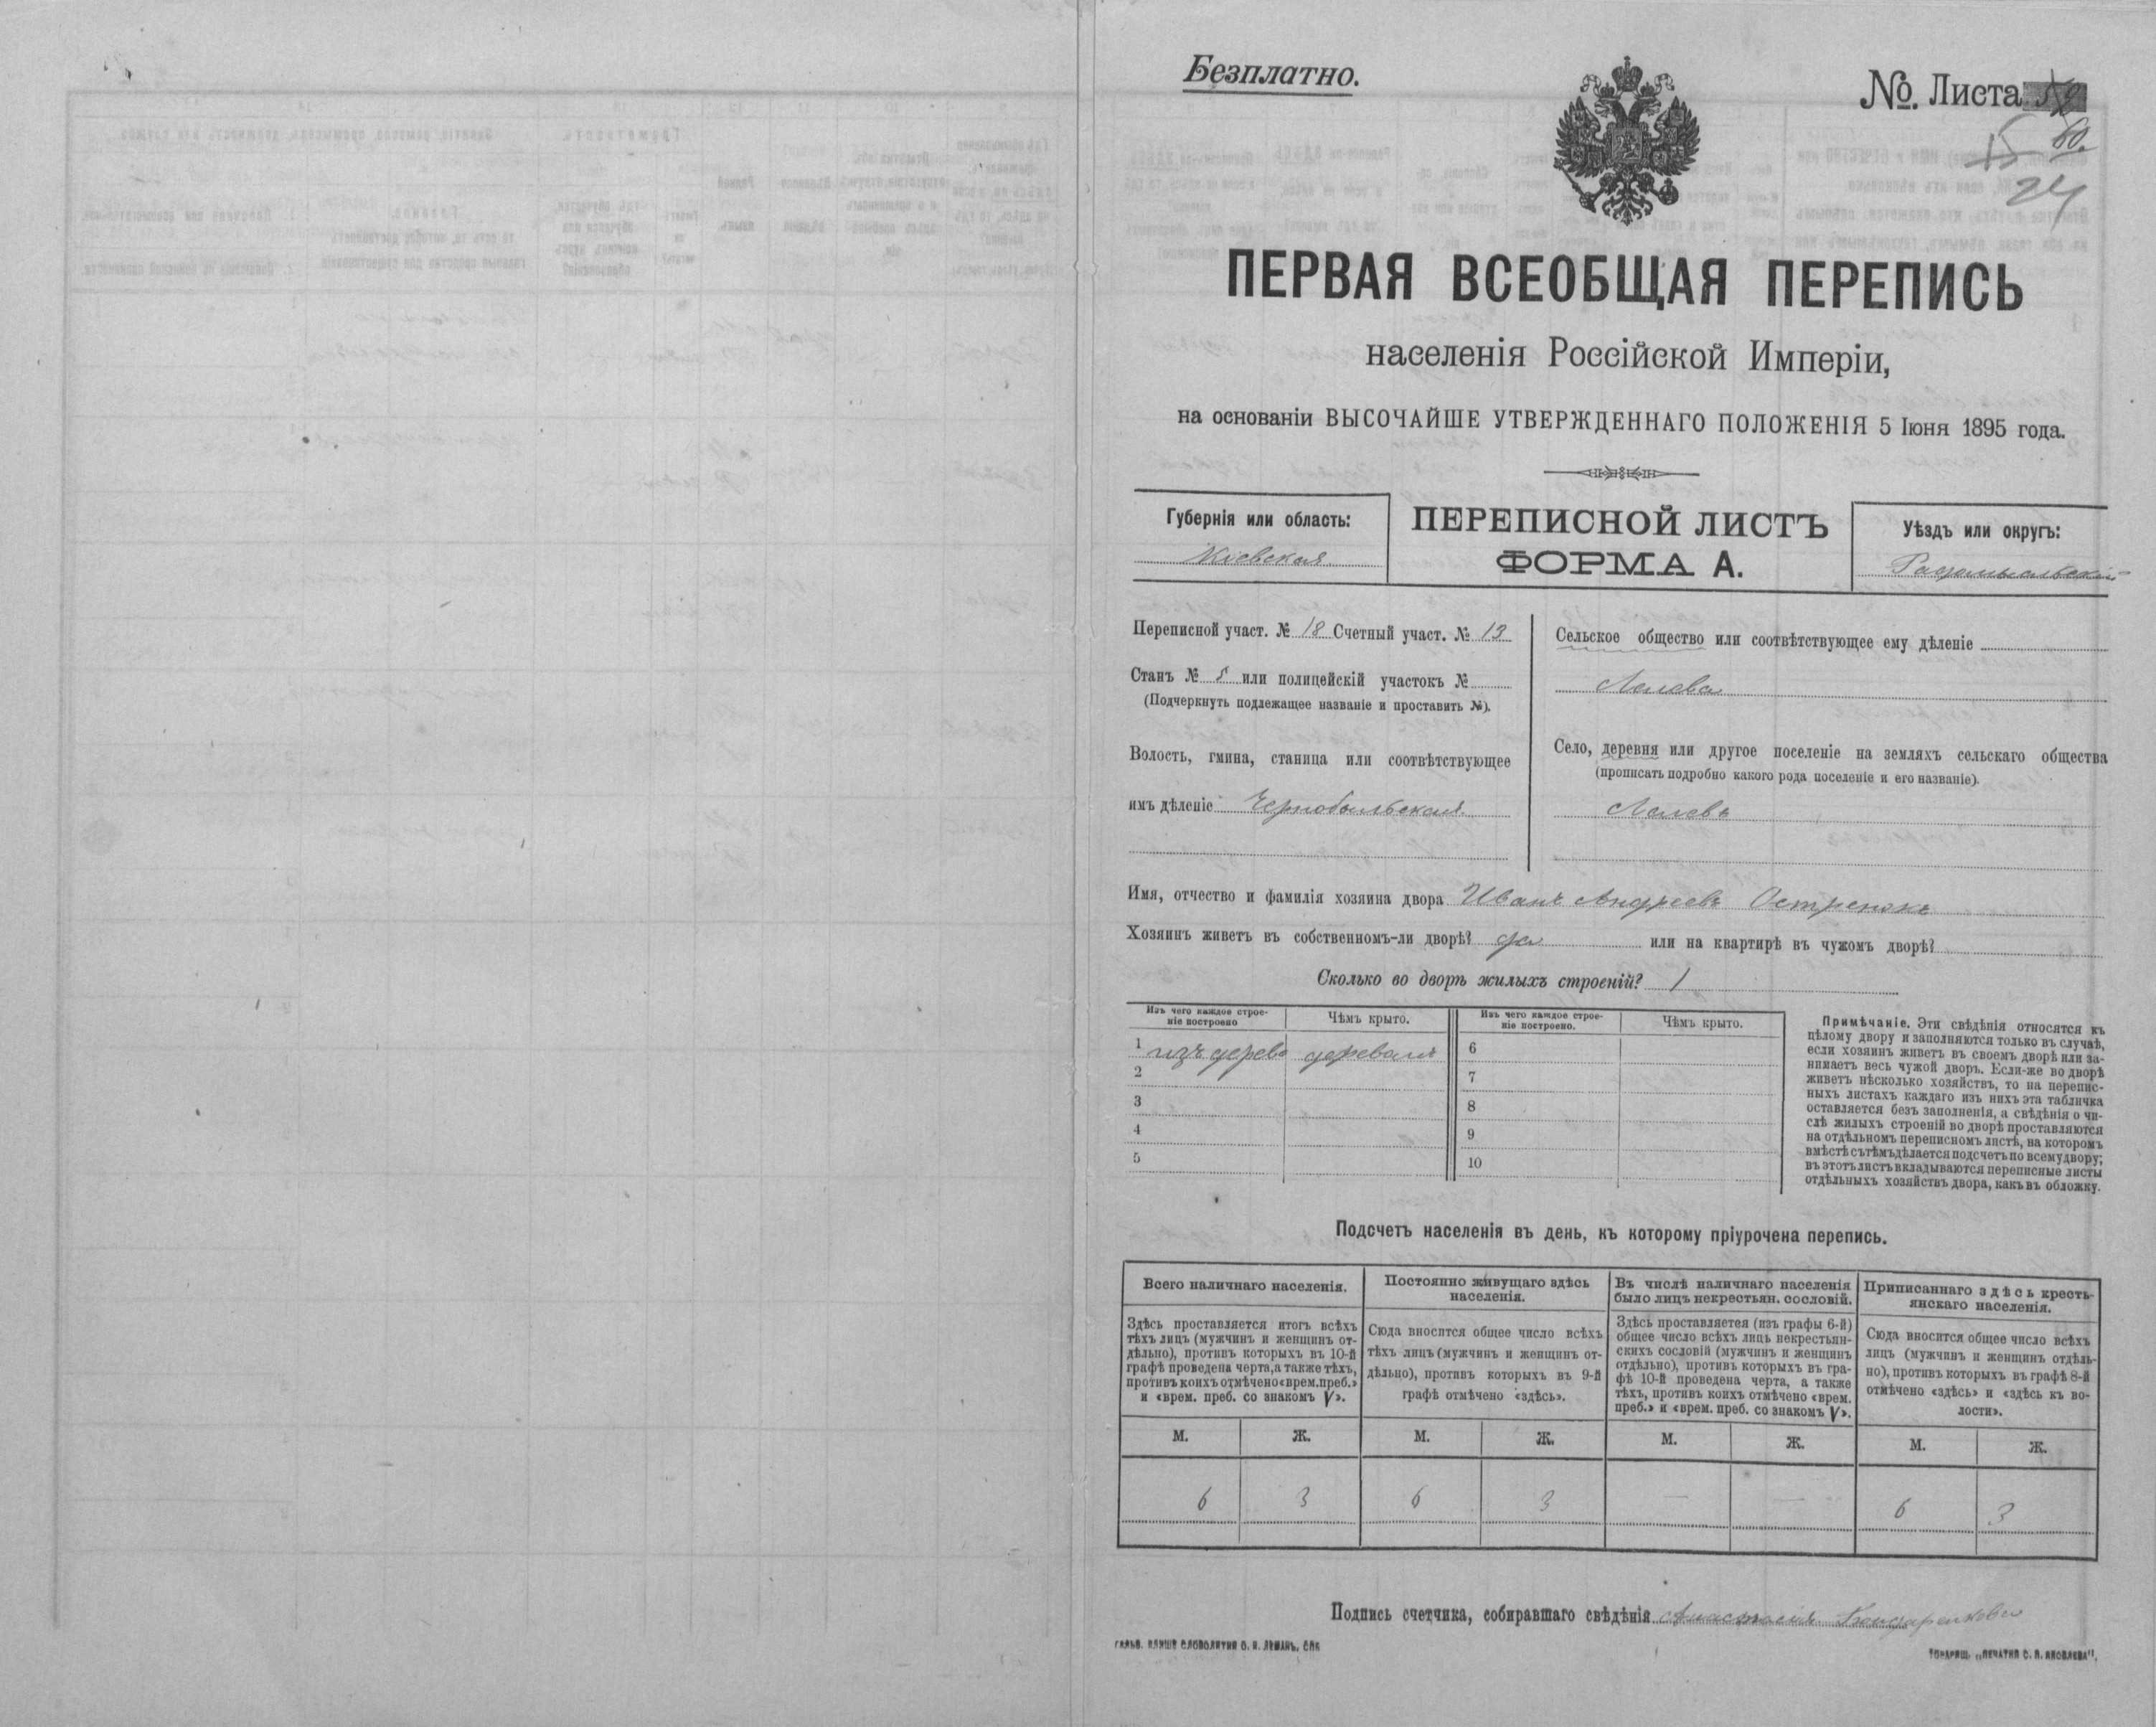 Безплатно.
№ Листа
60.
15
24
ПЕРВАЯ ВСЕОБЩАЯ ПЕРЕПИСЬ
населенія Россійской Имперіи,
на основаніи ВЫСОЧАЙШЕ УТВЕРЖДЕННАГО ПОЛОЖЕНІЯ 5 Іюня 1895 года.
Губернія или область:
Кіевская
ПЕРЕПИСНОЙ ЛИСТЪ
ФОРМА А.
Уѣздъ или округъ:
Радомысльскій
Переписной участ. № 18 Счетный участ. № 13
Станъ № 5 или полицейскій участокъ №
(Подчеркнуть подлежащее названіе и проставить №).
Волость, гмина, станица или соотвѣтствующее
имъ дѣленіе Чернобыльская
Сельское общество или соотвѣтствующее ему дѣленіе
Лелева
Село, деревня или другое поселеніе на земляхъ сельскаго общества
(прописать подробно какого рода поселеніе и его названіе).
Лелевъ
Имя, отчество и фамилія хозяина двора Иванъ Андреевъ
Хозяинъ живетъ въ собственномъ-ли дворѣ? да или на квартирѣ въ чужомъ дворѣ?
Сколько во дворѣ жилыхъ строеній? 1
Изъ чего каждое строе-
ніе построено
Чѣмъ крыто.
Изъ чего каждое строе-
ніе построено.
Чѣмъ крыто.
1 изъ дерева деревомъ
2
3
4
5
6
7
8
9
10
Примѣчаніе. Эти свѣдѣнія относятся къ
цѣлому двору и заполняются только въ случаѣ,
если хозяинъ живетъ въ своемъ дворѣ или за-
нимаетъ весь чужой дворъ. Если-же во дворѣ
живетъ нѣсколько хозяйствъ, то на перепис-
ныхъ листахъ каждаго изъ нихъ эта табличка
оставляется безъ заполненія, а свѣдѣнія о чи-
слѣ жилыхъ строеній во дворѣ проставляются
на отдѣльномъ переписномъ листѣ, на которомъ
вмѣстѣ съ тѣмъ дѣлается подсчетъ по всему двору;
въ этотъ листъ вкладываются переписные листы
отдѣльныхъ хозяйствъ двора, какъ въ обложку.
Подсчетъ населенія въ день, къ которому пріурочена перепись.
Всего наличнаго населенія.
Здѣсь проставляется итогъ всѣхъ
тѣхъ лицъ (мужчинъ и женщинъ от-
дѣльно), противъ которыхъ въ 10-й
графѣ проведена черта, а также тѣхъ,
противъ коихъ отмѣчено «врем. преб.»
и «врем. преб. со знакомъ V».
Постоянно живущаго здѣсь
населенія.
Сюда вносится общее число всѣхъ
тѣхъ лицъ (мужчинъ и женщинъ от-
дѣльно), противъ которыхъ въ 9-й
графѣ отмѣчено «здѣсь».
Въ числѣ наличнаго населенія
было лицъ некрестьян. сословій.
Здѣсь проставляется (изъ графы 6-й)
общее число всѣхъ лицъ некрестьян-
скихъ сословій (мужчинъ и женщинъ
отдѣльно), противъ которыхъ въ гра-
фѣ 10-й проведена черта, а также
тѣхъ, противъ коихъ отмѣчено «врем.
преб.» и «врем. преб. со знакомъ V».
Приписаннаго здѣсь кресть-
янскаго населенія.
Сюда вносится общее число всѣхъ
лицъ (мужчинъ и женщинъ отдѣль-
но), противъ которыхъ въ графѣ 8-й
отмѣчено «здѣсь» и «здѣсь къ во-
лости».
М. Ж. М. Ж. М. Ж. М. Ж.
6 3 6 3 — — 6 3
Подпись счетчика, собиравшаго свѣдѣнія Анастасія Бондаренкова
ГАЛЬВ. КЛИШЕ СЛОВОЛИТНИ О. И. ЛЕМАНЪ, СПБ
ТОВАРИЩ. „ПЕЧАТНЯ С. П. ЯКОВЛЕВА“.